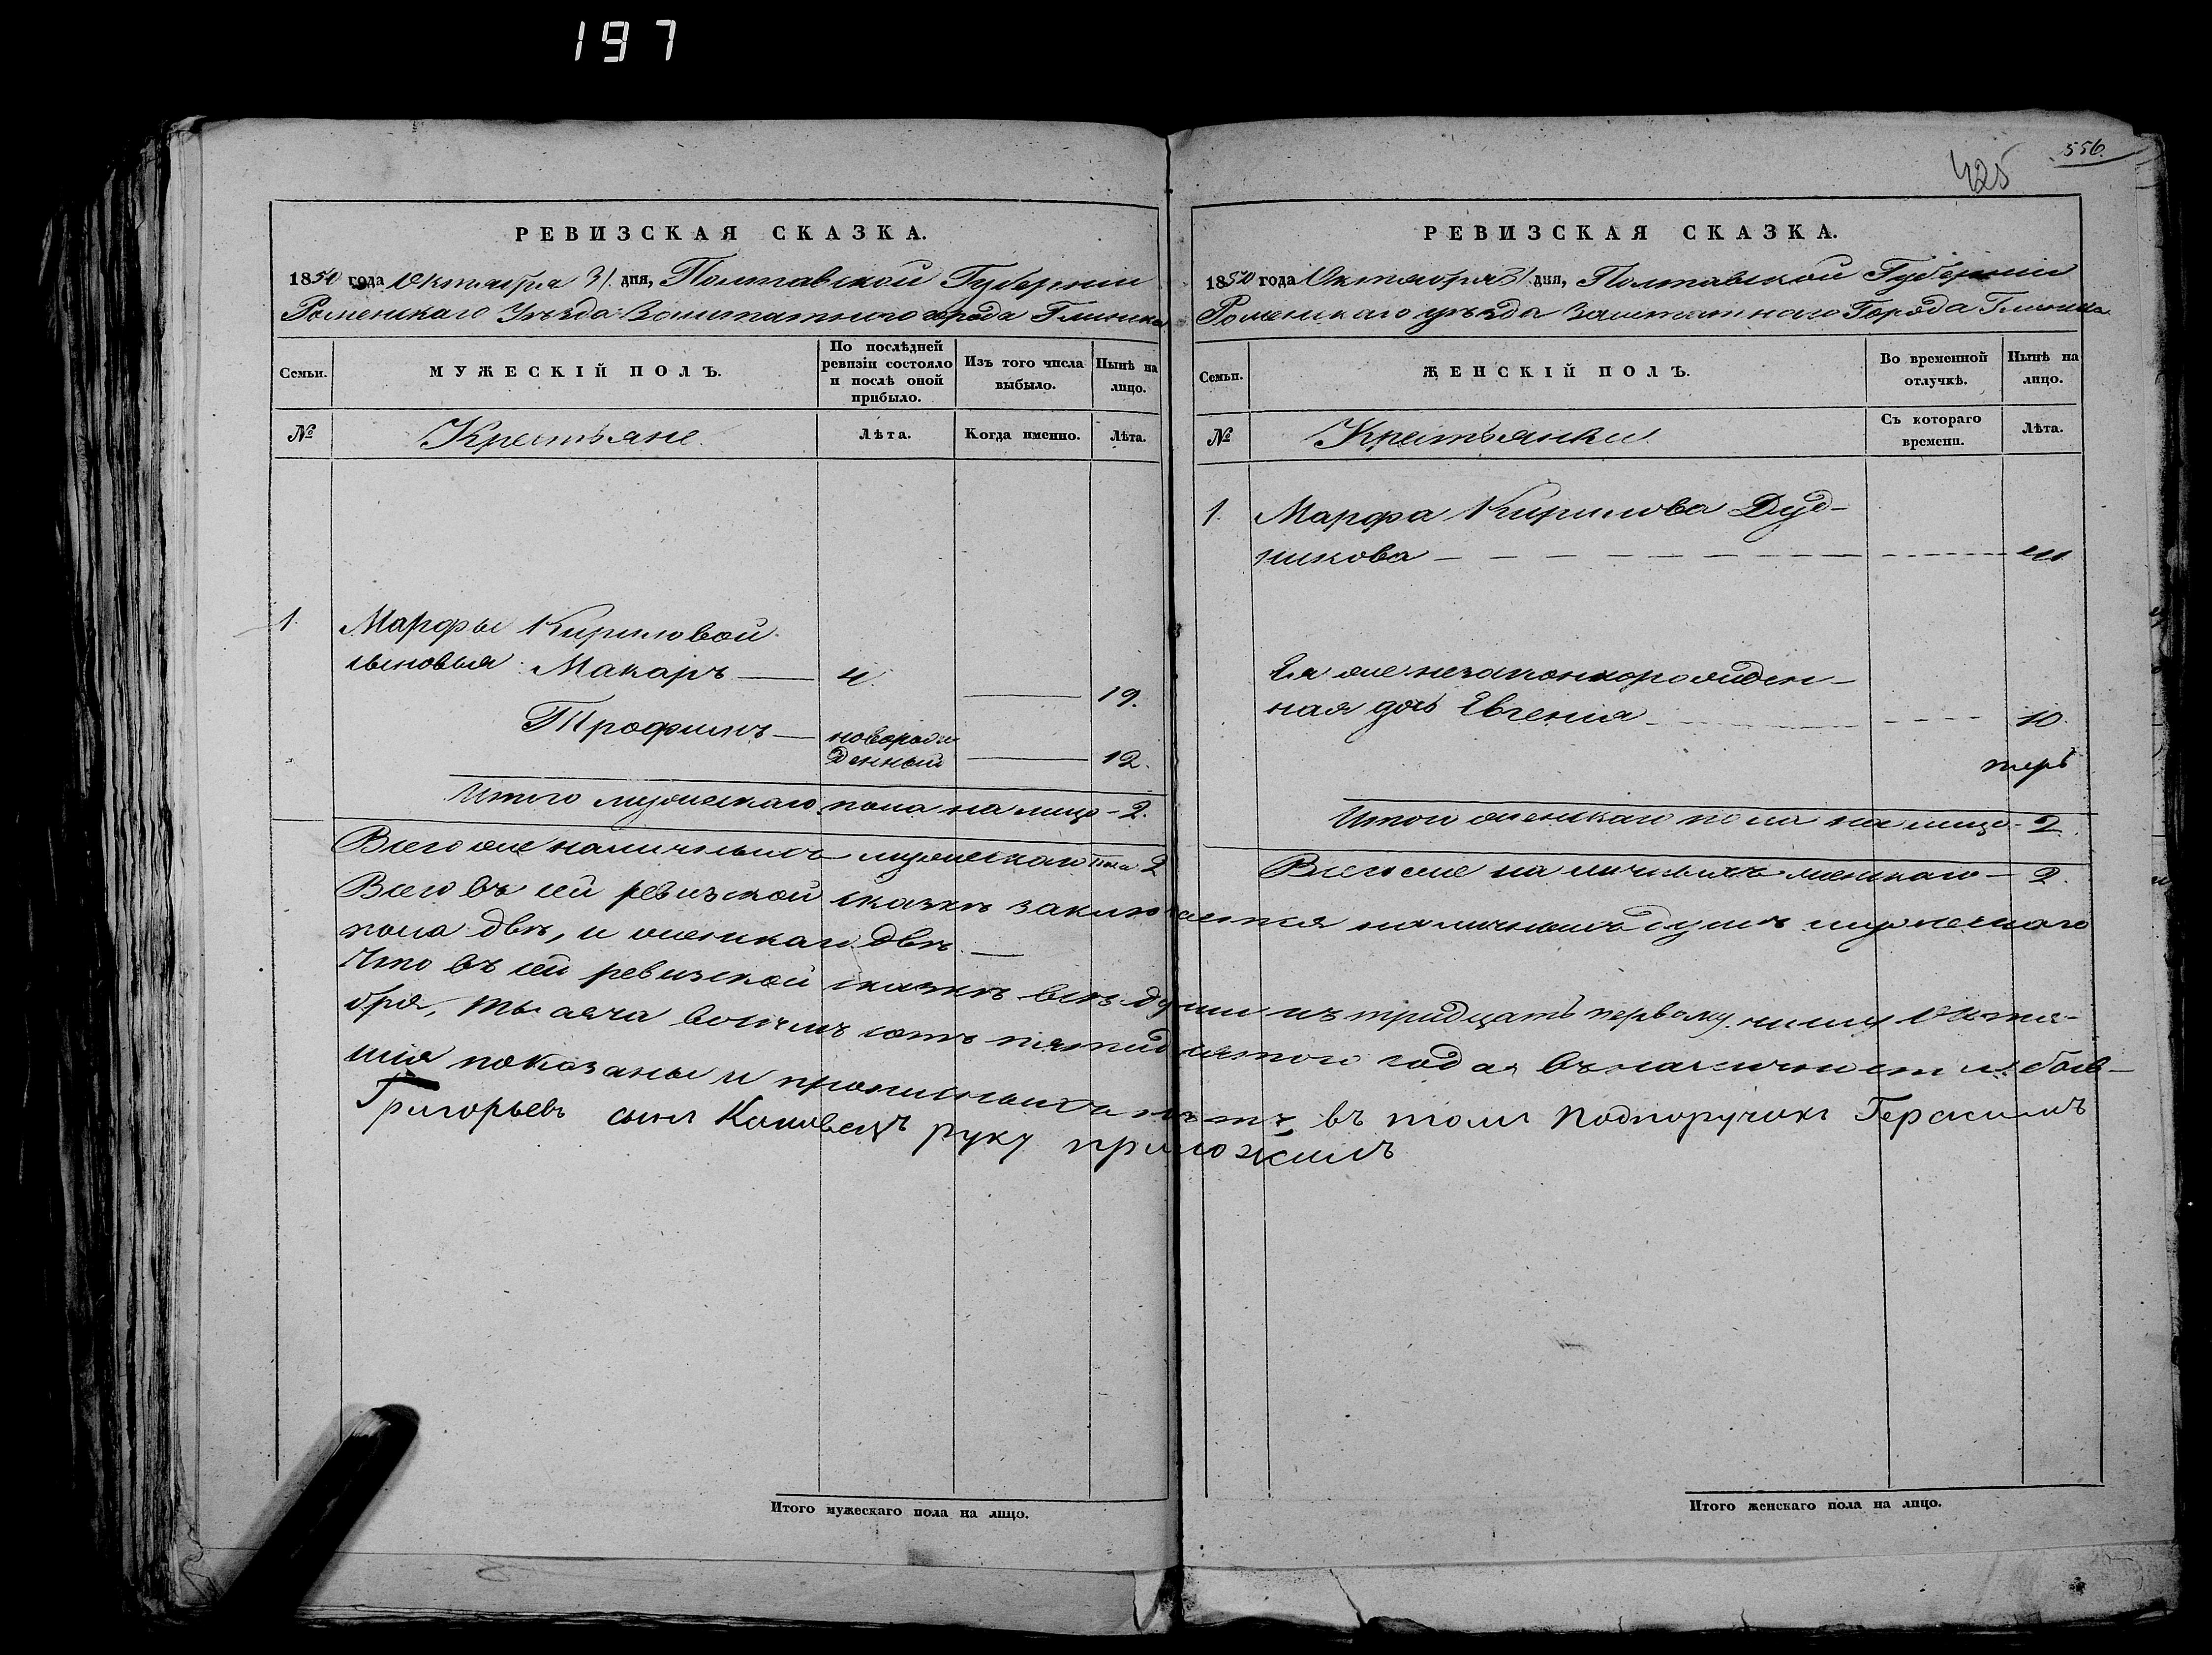 197
425
556.
РЕВИЗСКАЯ СКАЗКА.
1850 года Октября 31 дня, Полтавской Губернии
Роменскаго Уѣзда Заштатнаго города Глинска
Семьи.
МУЖЕСКІЙ ПОЛЪ.
По послѣдней ревизіи состояло и послѣ оной прибыло.
Изъ того числа выбыло.
Нынѣ на лицо.
№
Крестьяне.
Лѣта.
Когда именно.
Лѣта.
1. Марфы Кириловой
сыновья Макаръ — 4. — 19.
Трофимъ — новорож
денный — 12.
Итого мужескаго пола на лицо - 2.
Всего же наличныхъ мужескаго пола 2
РЕВИЗСКАЯ СКАЗКА.
1850 года Октября 31 дня, Полтавской Губернии
Роменскаго уѣзда Заштатнаго Города Глинска
Семьи.
ЖЕНСКІЙ ПОЛЪ.
Во временной отлучкѣ.
Нынѣ на лицо.
№
Крестьянки
Съ котораго времени.
Лѣта.
1. Марфа Кирилова Дуд-
никова — 41
Ея же незаконнорожден-
ная дочь Евгенія 10.
Итого женскаго пола на лицо - 2.
Всего же наличныхъ женскаго — 2.
Всего въ сей ревизской сказкѣ заключается наличныхъ душъ мужескаго
пола двѣ, и женскаго двѣ. —
Что въ сей ревизской сказкѣ всѣ души къ тридцать первому числу Октя-
бря, тысяча восемь сотъ пятидесятого года въ наличности быв-
шія показаны и прописныхъ нѣтъ, въ томъ Подпоручикъ Герасимъ
Григорьевъ сынъ руку приложилъ
Итого мужескаго пола на лицо.
Итого женскаго пола на лицо.